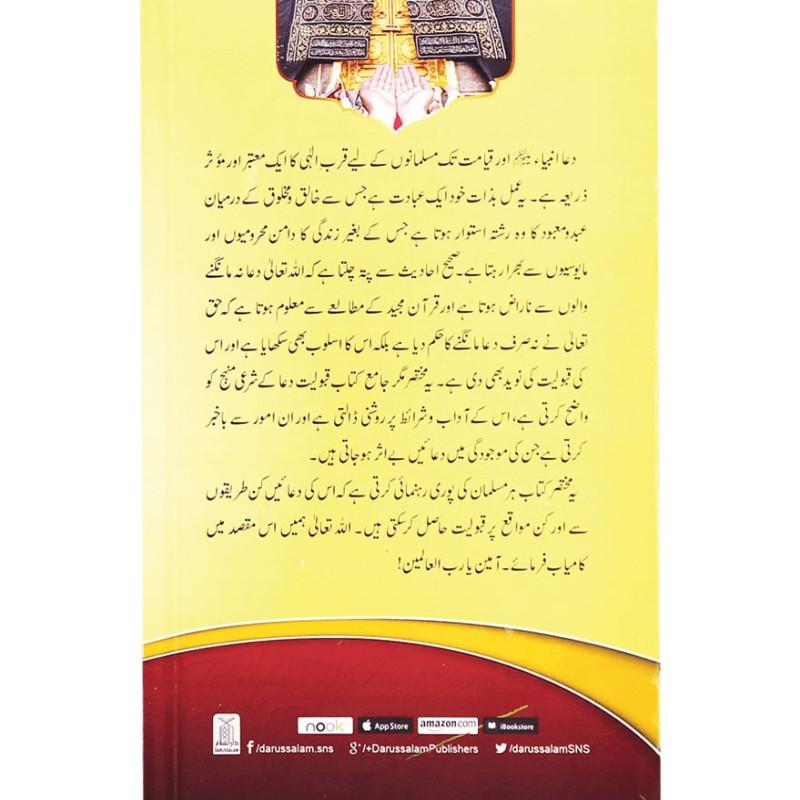 دعا انبیاء علیہم السلام اور قیامت تک مسلمانوں کے لیے قربِ الٰہی کا ایک معتبر اور مؤثر
ذریعہ ہے۔ یہ عمل بذات خود ایک عبادت ہے جس سے خالق و مخلوق کے درمیان
عبد و معبود کا وہ رشتہ استوار ہوتا ہے جس کے بغیر زندگی کا دامن محرومیوں اور
مایوسیوں سے بھرا رہتا ہے۔ صحیح احادیث سے پتہ چلتا ہے کہ اللہ تعالیٰ دعا نہ مانگنے
والوں سے ناراض ہوتا ہے اور قرآن مجید کے مطالعے سے معلوم ہوتا ہے کہ حق
تعالیٰ نے نہ صرف دعا مانگنے کا حکم دیا ہے بلکہ اس کا اسلوب بھی سکھایا ہے اور اس
کی قبولیت کی نوید بھی دی ہے۔ یہ مختصر مگر جامع کتاب قبولیت دعا کے شرعی منہج کو
واضح کرتی ہے، اس کے آداب و شرائط پر روشنی ڈالتی ہے اور ان امور سے باخبر
کرتی ہے جن کی موجودگی میں دعائیں بے اثر ہو جاتی ہیں۔
یہ مختصر کتاب ہر مسلمان کی پوری رہنمائی کرتی ہے کہ اس کی دعائیں کن طریقوں
سے اور کن مواقع پر قبولیت حاصل کر سکتی ہیں۔ اللہ تعالیٰ ہمیں اس مقصد میں
کامیاب فرمائے۔ آمین یا رب العالمین!
nook App Store amazon.com iBookstore
دارالسلام
DARUSSALAM
/darussalam.sns /+DarussalamPublishers /darussalamSNS